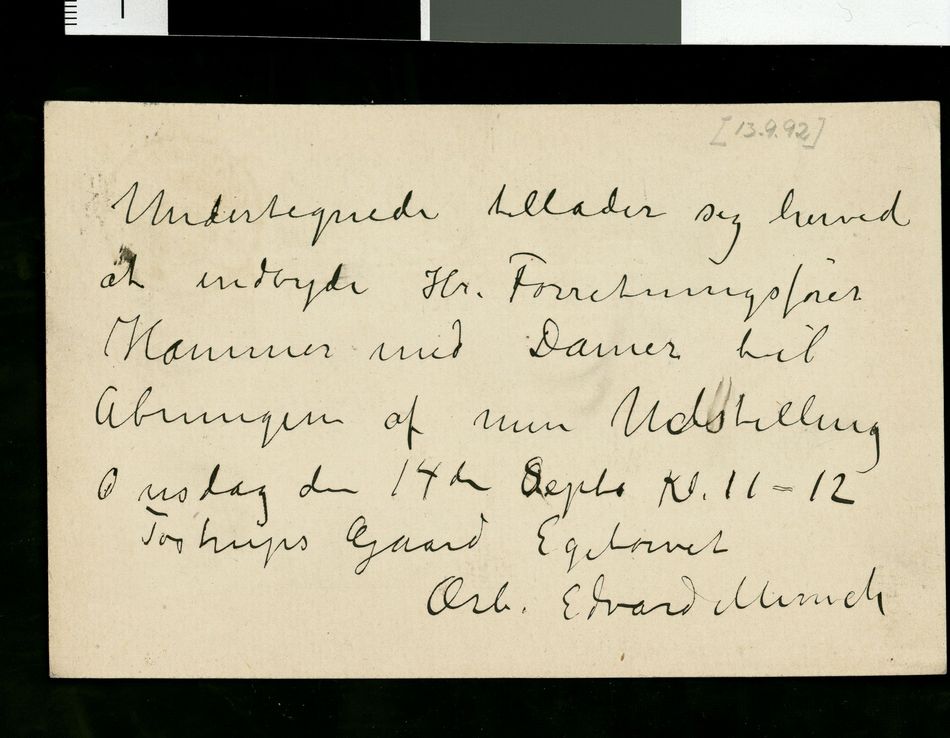 [13.9.92]
Undertegnede tillader sig herved
at indbyde Hr. Forretningsfører
Hammer med Damer til
Abningen af min Udstilling
Onsdag den 14de Septb Kl. 11–12
Tostrups Gaard Egetorvet
Ærb. Edvard Munch